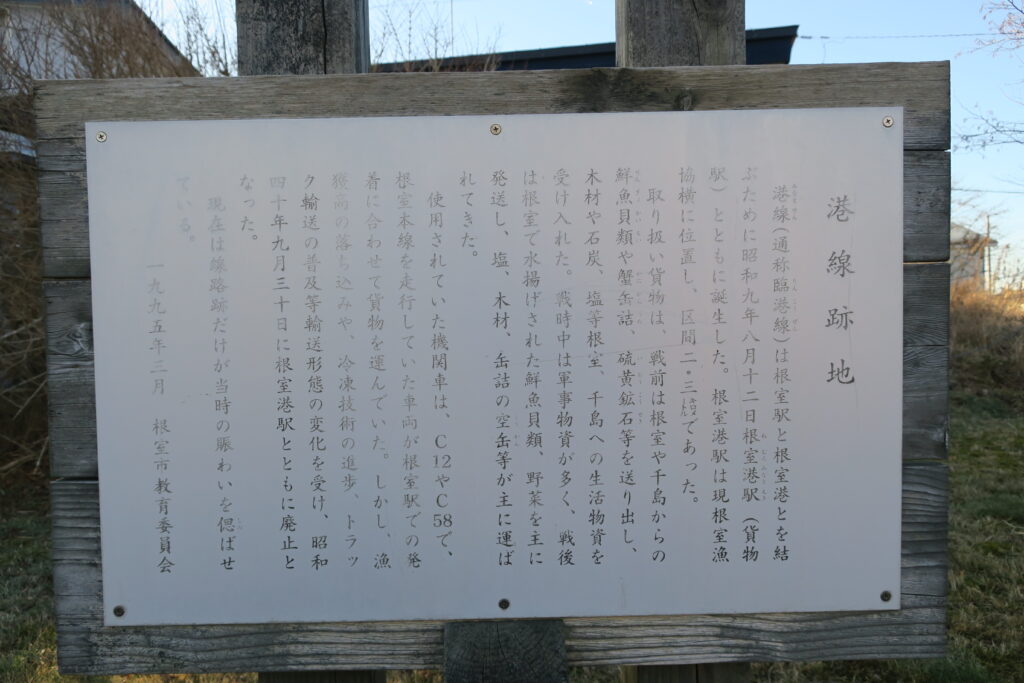 港線跡地
港線(通称臨港線)は根室駅と根室港とを結
ぶために昭和九年八月十二日根室港駅(貨物
駅)とともに誕生した。根室港駅は現根室漁
協横に位置し、区間二・三㌖であった。
取り扱い貨物は、戦前は根室や千島からの
鮮魚貝類や蟹缶詰、硫黄鉱石等を送り出し、
木材や石炭、塩等根室、千島への生活物資を
受け入れた。戦時中は軍事物資が多く、戦後
は根室で水揚げされた鮮魚貝類、野菜を主に
発送し、塩、木材、缶詰の空缶等が主に運ば
れてきた。
使用されていた機関車は、C12やC58で、
根室本線を走行していた車両が根室駅での発
着に合わせて貨物を運んでいた。しかし、漁
獲高の落ち込みや、冷凍技術の進歩、トラッ
ク輸送の普及等輸送形態の変化を受け、昭和
四十年九月三十日に根室港駅とともに廃止と
なった。
現在は線路跡だけが当時の賑わいを偲ばせ
ている。
一九九五年三月 根室市教育委員会